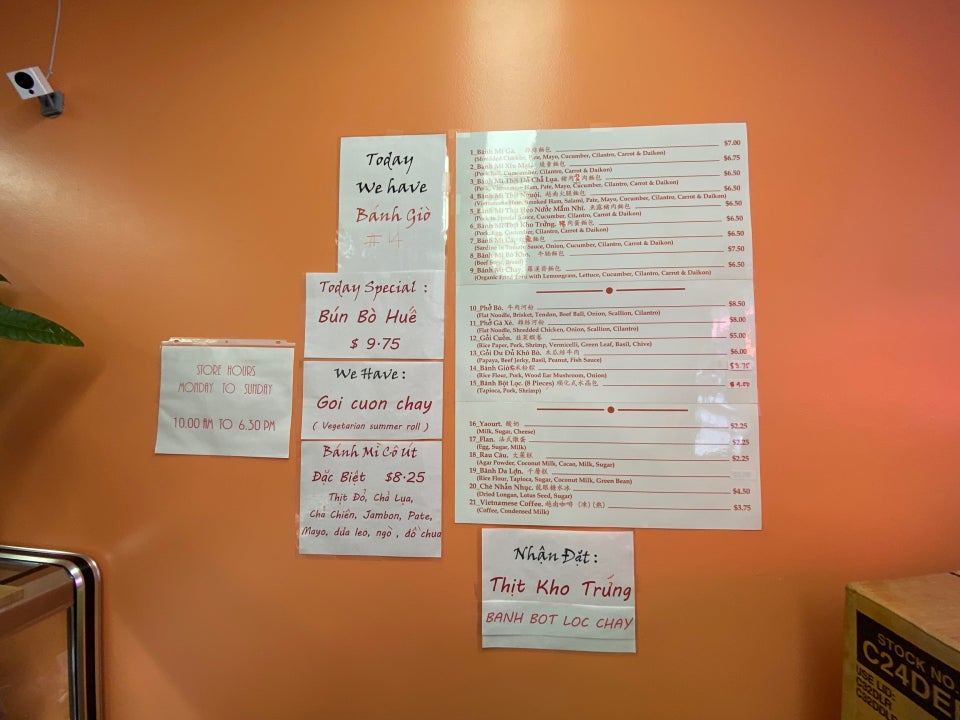 STORE HOURS
MONDAY TO SUNDAY
10.00 AM TO 6.30 PM
Today
We have
Bánh Giò
#14
Today Special :
Bún Bò Huế
$ 9.75
We Have :
Goi cuon chay
( Vegetarian summer roll )
Bánh Mì Cô Út
Đặc Biệt $8.25
Thịt Đỏ, Chả Lụa,
Chả Chiên, Jambon, Pate,
Mayo, dưa leo, ngò , đồ chua
1_Bánh Mì Gà. 雞絲麵包 $7.00
(Shredded Chicken, Pate, Mayo, Cucumber, Cilantro, Carrot & Daikon)
2_Bánh Mì Xíu Mại. 麵包 $6.75
(Pork Ball, Cucumber, Cilantro, Carrot & Daikon)
3_Bánh Mì Thịt Đỏ Chả Lụa. 肉麵包 $6.50
(Pork, Vietnamese Ham, Pate, Mayo, Cucumber, Cilantro, Carrot & Daikon)
4_Bánh Mì Thịt Nguội. 越南火腿麵包 $6.50
(Vietnamese Ham, Smoked Ham, Salami, Pate, Mayo, Cucumber, Cilantro, Carrot & Daikon)
5_Bánh Mì Thịt Heo Nước Mắm Nhỉ. 魚露豬肉麵包 $6.50
(Pork in Special Sauce, Cucumber, Cilantro, Carrot & Daikon)
6_Bánh Mì Thịt Kho Trứng. 肉蛋麵包 $6.50
(Pork, Egg, Cucumber, Cilantro, Carrot & Daikon)
7_Bánh Mì Cá. 魚麵包 $6.50
(Sardine in Tomato Sauce, Onion, Cucumber, Cilantro, Carrot & Daikon)
8_Bánh Mì Bò Kho. 牛腩麵包 $7.50
(Beef Stew, Bread)
9_Bánh Mì Chay. 羅漢齋麵包 $6.50
(Organic Fried Tofu with Lemongrass, Lettuce, Cucumber, Cilantro, Carrot & Daikon)
10_Phở Bò. 牛肉河粉 $8.50
(Flat Noodle, Brisket, Tendon, Beef Ball, Onion, Scallion, Cilantro)
11_Phở Gà Xé. 雞絲河粉 $8.00
(Flat Noodle, Shredded Chicken, Onion, Scallion, Cilantro)
12_Gỏi Cuốn. 韭菜蝦卷 $5.00
(Rice Paper, Pork, Shrimp, Vermicelli, Green Leaf, Basil, Chive)
13_Gỏi Đu Đủ Khô Bò. 木瓜絲牛肉 $6.00
(Papaya, Beef Jerky, Basil, Peanut, Fish Sauce)
14_Bánh Giò 米粉粽 $3.75
(Rice Flour, Pork, Wood Ear Mushroom, Onion)
15_Bánh Bột Lọc. (8 Pieces) 順化式水晶包 $4.00
(Tapioca, Pork, Shrimp)
16_Yaourt. 酸奶 $2.25
(Milk, Sugar, Cheese)
17_Flan. 法式燉蛋 $2.25
(Egg, Sugar, Milk)
18_Rau Câu. 大菜糕 $2.25
(Agar Powder, Coconut Milk, Cacao, Milk, Sugar)
19_Bánh Da Lợn. 千層糕
(Rice Flour, Tapioca, Sugar, Coconut Milk, Green Bean)
20_Chè Nhãn Nhục. 龍眼糖水冰 $4.50
(Dried Longan, Lotus Seed, Sugar)
21_Vietnamese Coffee. 越南咖啡 (凍) (熱) $3.75
(Coffee, Condensed Milk)
Nhận Đặt :
Thịt Kho Trứng
BANH BOT LOC CHAY
STOCK NO.
C24DE
USE LID:
C32DLR